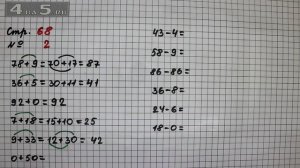 4a5.ru
Стр. 68
№ 2
78+9=70+17=87
36+5=30+11=41
92+0=92
7+18=15+10=25
9+33=12+30=42
0+50=
43-4=
58-9=
86-86=
36-8=
24-6=
18-0=